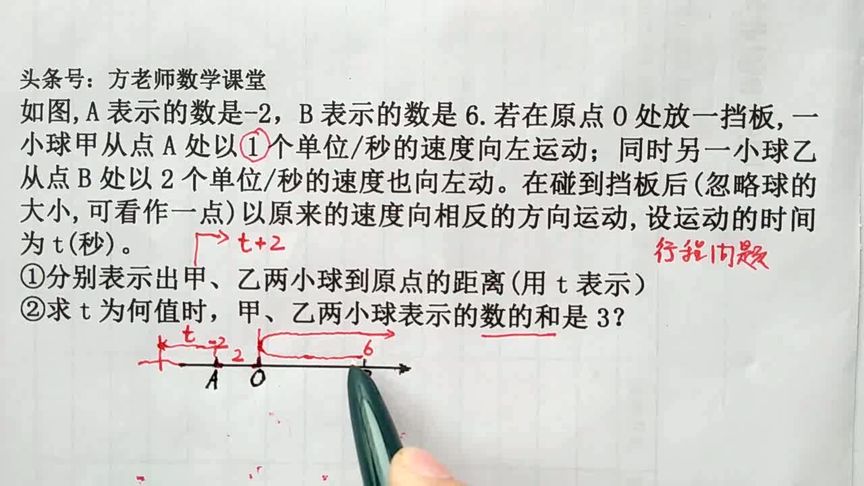 头条号：方老师数学课堂
如图,A表示的数是-2，B表示的数是6.若在原点O处放一挡板,一
小球甲从点A处以1个单位/秒的速度向左运动；同时另一小球乙
从点B处以2个单位/秒的速度也向左动。在碰到挡板后(忽略球的
大小,可看作一点)以原来的速度向相反的方向运动,设运动的时间
为t(秒)。
t+2
行程问题
①分别表示出甲、乙两小球到原点的距离(用t表示)
②求t为何值时，甲、乙两小球表示的数的和是3？
t -2 2 6
A O